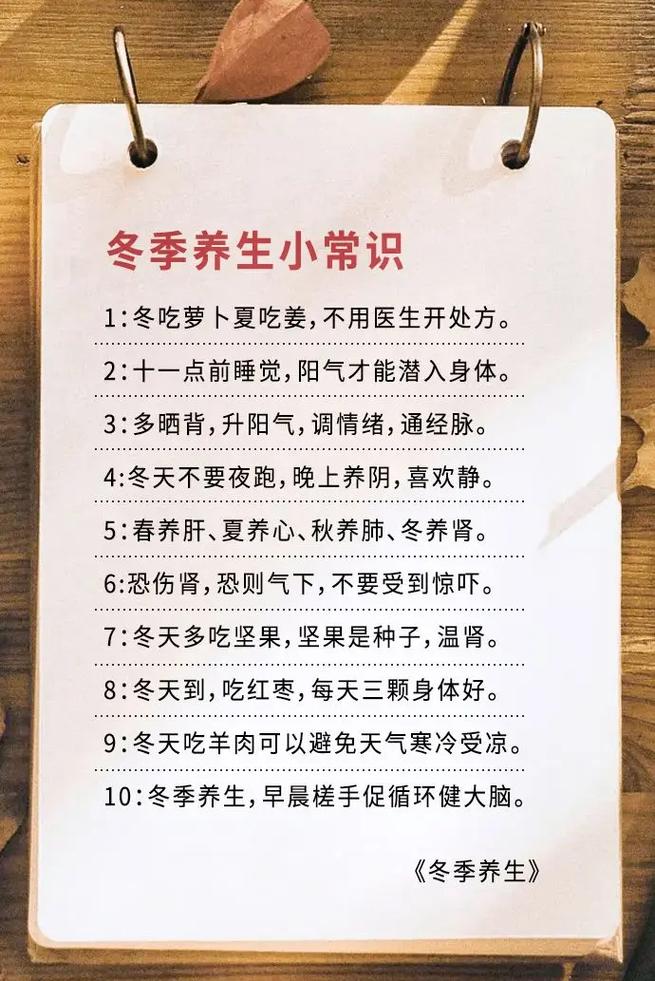 冬季养生小常识
1：冬吃萝卜夏吃姜，不用医生开处方。
2：十一点前睡觉，阳气才能潜入身体。
3：多晒背，升阳气，调情绪，通经脉。
4:冬天不要夜跑，晚上养阴，喜欢静。
5：春养肝、夏养心、秋养肺、冬养肾。
6:恐伤肾，恐则气下，不要受到惊吓。
7：冬天多吃坚果，坚果是种子，温肾。
8：冬天到，吃红枣，每天三颗身体好。
9：冬天吃羊肉可以避免天气寒冷受凉。
10：冬季养生，早晨槎手促循环健大脑。
《冬季养生》